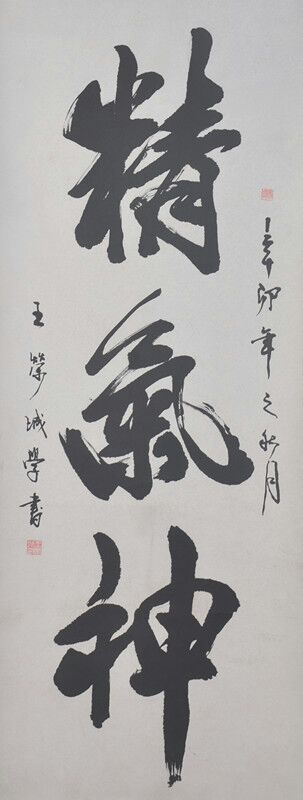 精氣神
辛卯年之秋月
王榮城學書